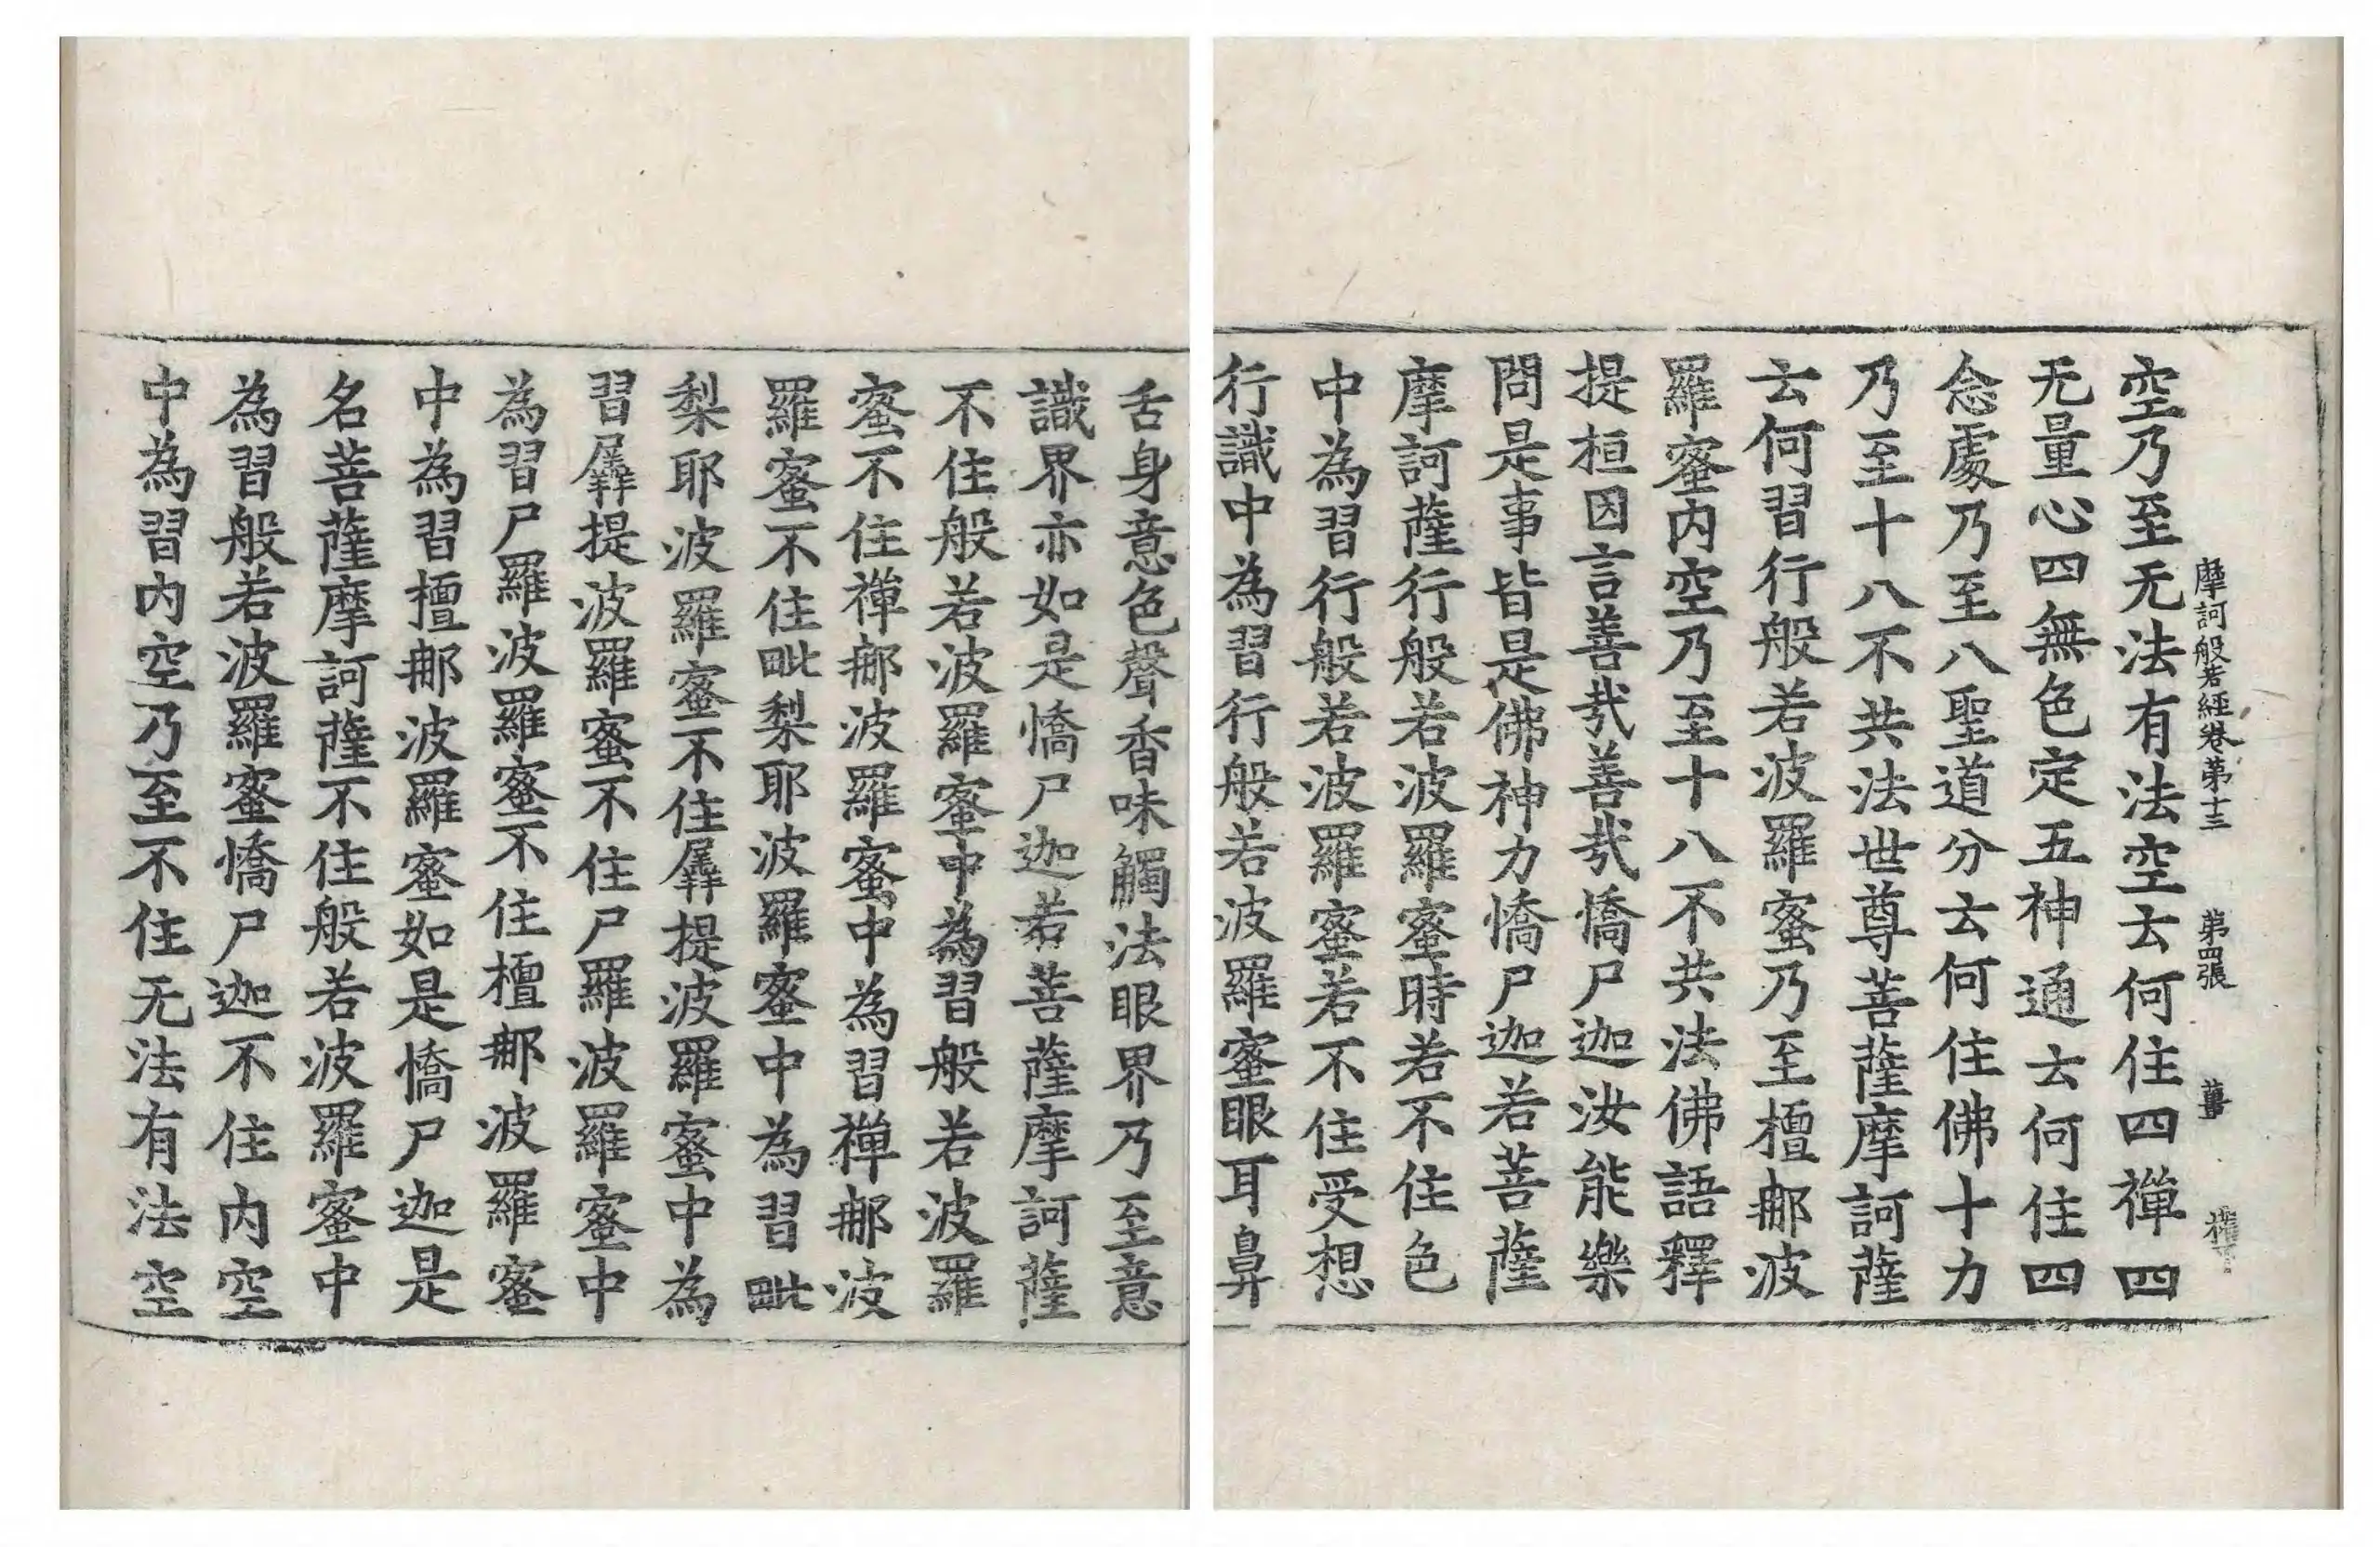 摩訶般若經卷第十三 第四張 薑
空乃至无法有法空云何住四禪四
无量心四無色定五神通云何住四
念處乃至八聖道分云何住佛十力
乃至十八不共法世尊菩薩摩訶薩
云何習行般若波羅蜜乃至檀那波
羅蜜内空乃至十八不共法佛語釋
提桓因言善哉善哉憍尸迦汝能樂
問是事皆是佛神力憍尸迦若菩薩
摩訶薩行般若波羅蜜時若不住色
中為習行般若波羅蜜若不住受想
行識中為習行般若波羅蜜眼耳鼻
舌身意色聲香味觸法眼界乃至意
識界亦如是憍尸迦若菩薩摩訶薩
不住般若波羅蜜中為習般若波羅
蜜不住禪那波羅蜜中為習禪那波
羅蜜不住毗梨耶波羅蜜中為習毗
梨耶波羅蜜不住羼提波羅蜜中為
習羼提波羅蜜不住尸羅波羅蜜中
為習尸羅波羅蜜不住檀那波羅蜜
中為習檀那波羅蜜如是憍尸迦是
名菩薩摩訶薩不住般若波羅蜜中
為習般若波羅蜜憍尸迦不住内空
中為習内空乃至不住无法有法空